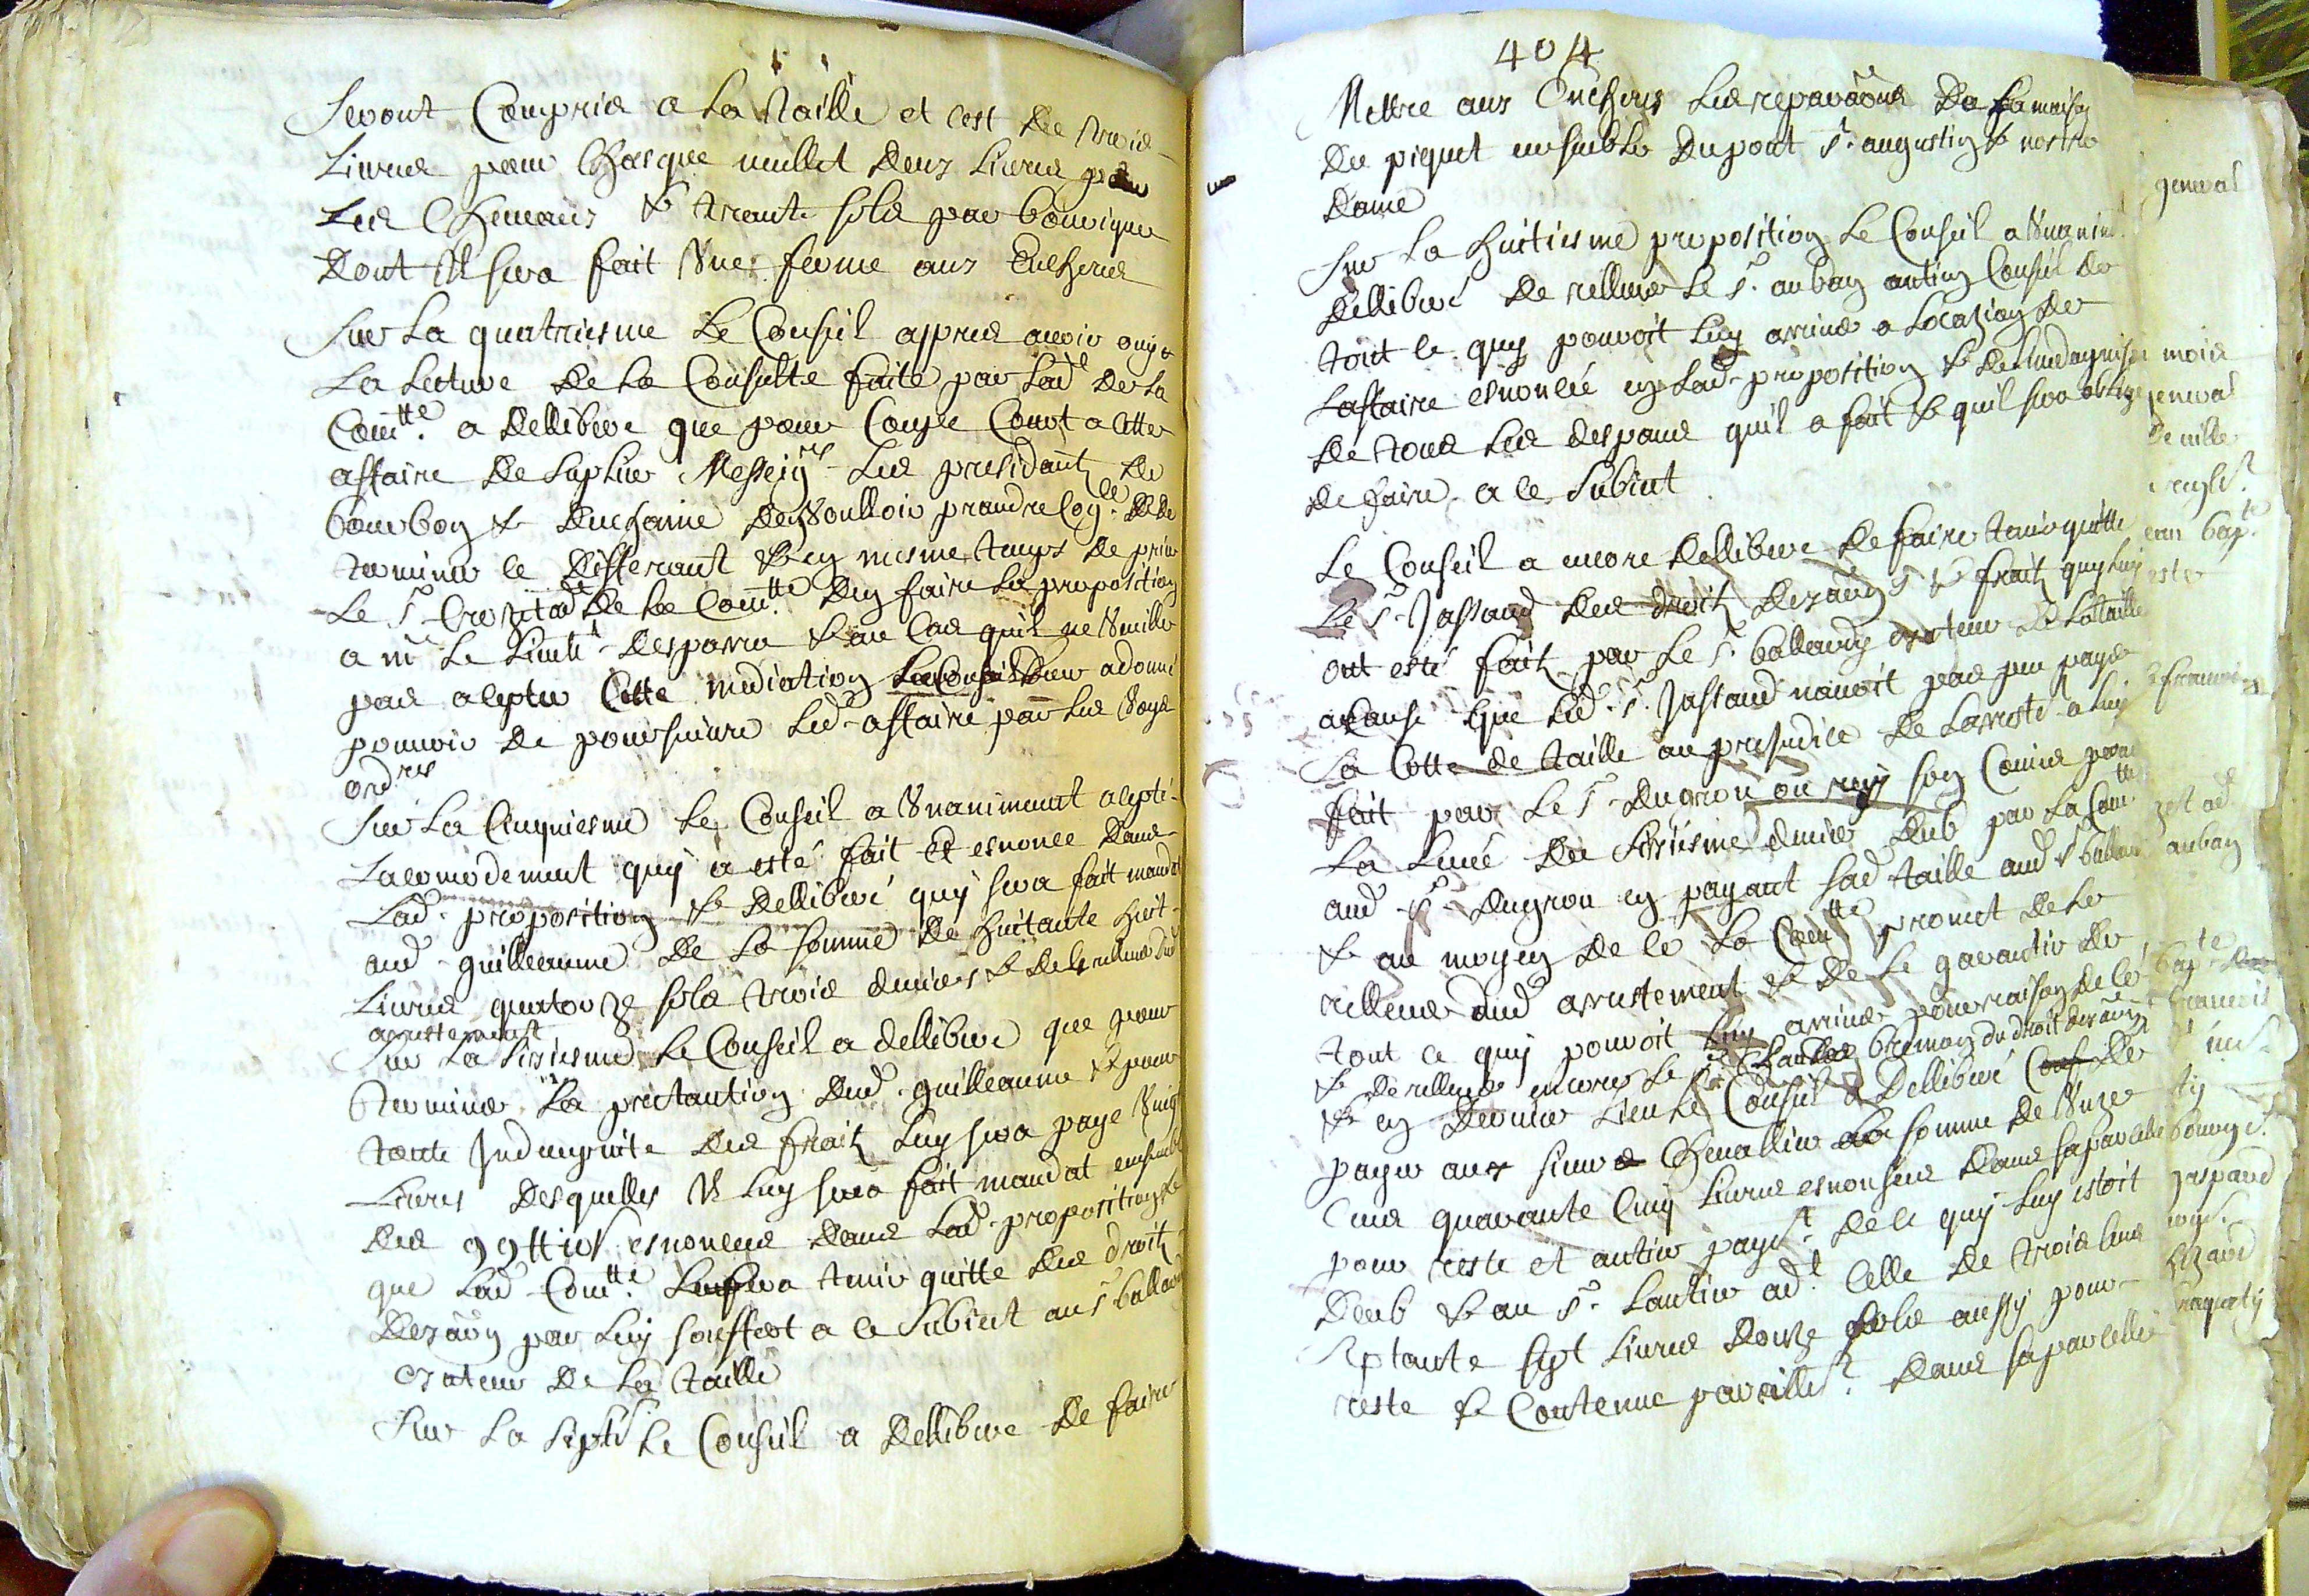 Seront Compris a La Taille et cest De trois
Livres pour Chasque mullet deux Livres pour
Les Chevaux & trante sols par bourique
Dont Il sera fait Une ferme aux Encheres
Sur La quatriesme Le Conseil appres avoir ouy
La Lecture De la Consulte faite par Lad. De La
Com.tte a Dellibere que pour Coupe Court a Cette
affaire De suplier Messeig.rs Les presidant De
bourbon & Duchaine De Voulloir prandre Cog.ce De
terminer le Differant & en mesme temps De prier
Le S.r De La Com.tte Den faire La proposition
a m.r Le Desparra & au Cas quil ne Veuille
pas acepter Cette mediation Le Conseil Leur a donné
pouvoir De poursuivre Led. affaire par Les Voyes
ord.res
Sur La Cinquiesme Le Conseil a Unanimement acepté
Lacomodement quy a esté fait Et esnoncé Dans
Lad. proposition & Delliberé quy sera fait mandat
aud. guilleaume De La somme De huitante huit
Livres quatorze sols trois deniers & De Le rellever dud.
arrestement
Sur La sixiesme Le Conseil a dellibere que pour
terminer La pretantion Dud. guilleaume & pour
toute Indempnite Des fraix Luy sera paye Vingt
Livres Desquelles Il Luy sera fait mandat ensemble
Des esnoncés Dans Lad. proposition &
que Lad. Com.tte Le fera tenir quitte Des droit
Desaug par Luy souffert a Ce Subiect au S.r ballardy
exateur De La taille
Sur La sept.e Le Conseil a Dellibere De faire
404
Mettre aux Encheres Les reparaõns De La maison
Du piquet ensemble Du pont S.t augustin & nostre
Dame
Sur La huitiesme proposition Le Conseil a Unanim.t
Delliberé De rellever Le S.r auban antien Consul De
tout Ce quy pouroit Luy arriver a Locazion De
Laffaire esnoncée en Lad. proposition & De Lindampniser
De tous Les despans quil a fait & quil sera obligé
De faire a Ce Subiect
Le Conseil a encore Dellibere De faire tenir quitte
Le S.r Jassaud Des droitz & fraix quy Luy
ont esté faitz par Le S.r ballardy exateur De La taille
a Cause que Led. S.r Jassaud navoit pas peu payer
La Cotte de taille au prejudice De Larresté a Luy
fait par Le S.r Dugrou son Comis pour
La Levée Du sixiesme denier Deub par La Com.tte
aud. S.r Dugrou en payant Lad. taille aud. S.r ballardy
& au moyen De Ce La Com.tte promet De Le
rellever dud. arrestement & De Le garantir De
tout Ce quy pouroit Luy arriver pour raison De Ce
& De rellever encores Le S.r Charles bremon du droit
& en Dernier Lieu Le Conseil a Delliberé De
payer aux sieurs Chevallier La somme De Unze
Cens quarante Cinq Livres esnonsées Dans sa parcelle
pour reste et antier payem.t De Ce quy Luy estoit
Deub & au S.r Lantier ad.t Celle De trois Cens
septante sept Livres Douze sols aussy pour
reste & Contenue parcillem.t Dans sa parcelle
general
mois
general
De ville
ean bap.te
este
francois
auban
bap.te
francois
gaspard